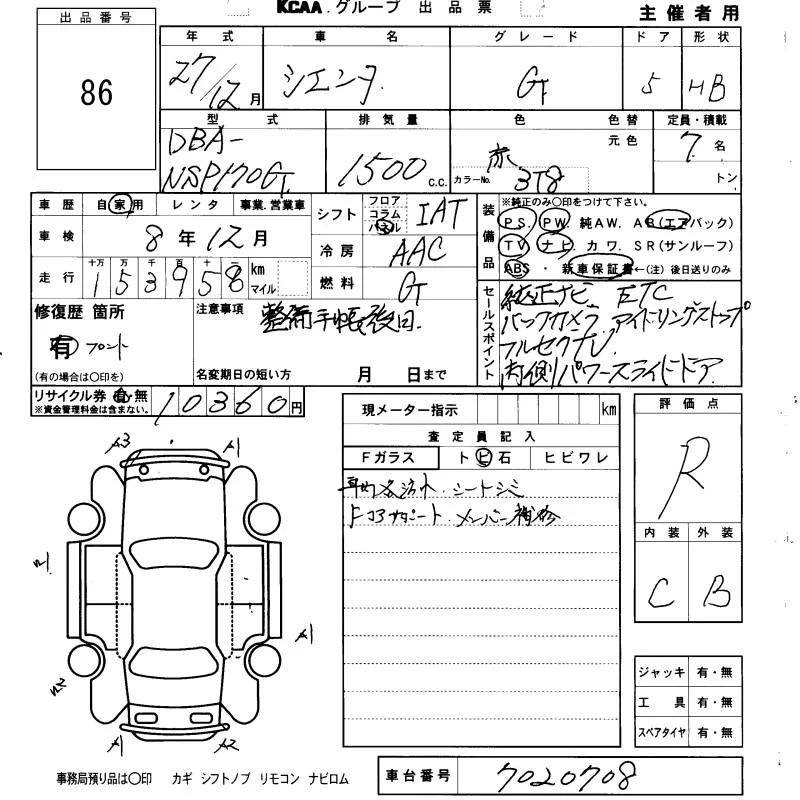 KCAA.グループ 出品票
主催者用
出品番号
86
年式 車名 グレード ドア 形状
27/12月 シエンタ G 5 HB
型式 排気量 色 色替 定員・積載
DBA-
NSP170G 1500 C.C. 赤 元色 7名
カラーNo. 3T8 トン
車歴 自家用 レンタ 事業.営業車
車検 8年12月
走行 十万 万 千 百 十 一
153958 km マイル
シフト フロア コラム パネル IAT
冷房 AAC
燃料 G
装備品
※純正のみ〇印をつけて下さい。
PS. PW. 純AW. AB(エアバック)
TV ナビ カワ. SR(サンルーフ)
ABS ・ 新車保証書←(注)後日送りのみ
修復歴 箇所
有 フロント
(有の場合は〇印を)
注意事項 整備手帳後日.
名変期日の短い方 月 日まで
セールスポイント
純正ナビ ETC
バックカメラ アイドリングストップ
フルセグTV
両側パワースライドドア
リサイクル券 有 無
※資金管理料金は含まない。
10360円
現メーター指示 km
査定員記入
Fガラス トビ石 ヒビワレ
シートシミ
Fコアサポート メンバー補修
評価点
R
内装 外装
C B
ジャッキ 有・無
工具 有・無
スペアタイヤ 有・無
A3 A1
A1
A1 A2
事務局預り品は〇印 カギ シフトノブ リモコン ナビロム
車台番号 7020708